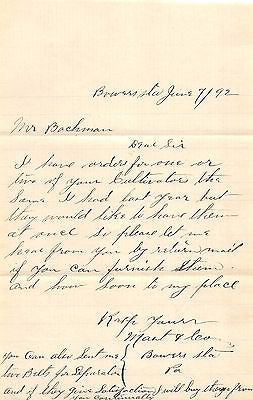 Bowers sta June 7/92
Mr Bachman
Dear Sir
I have orders for one or
two of your Cultivator the
Same I had last year but
they would like to have them
at once so please let me
hear from you by return mail
if you can furnish them
and how soon to my place
Resp Yours
& Co
Bowers sta
Pa
you can also sent me
two Belts for Seperator
and if they give Satisfaction I will buy them from
you